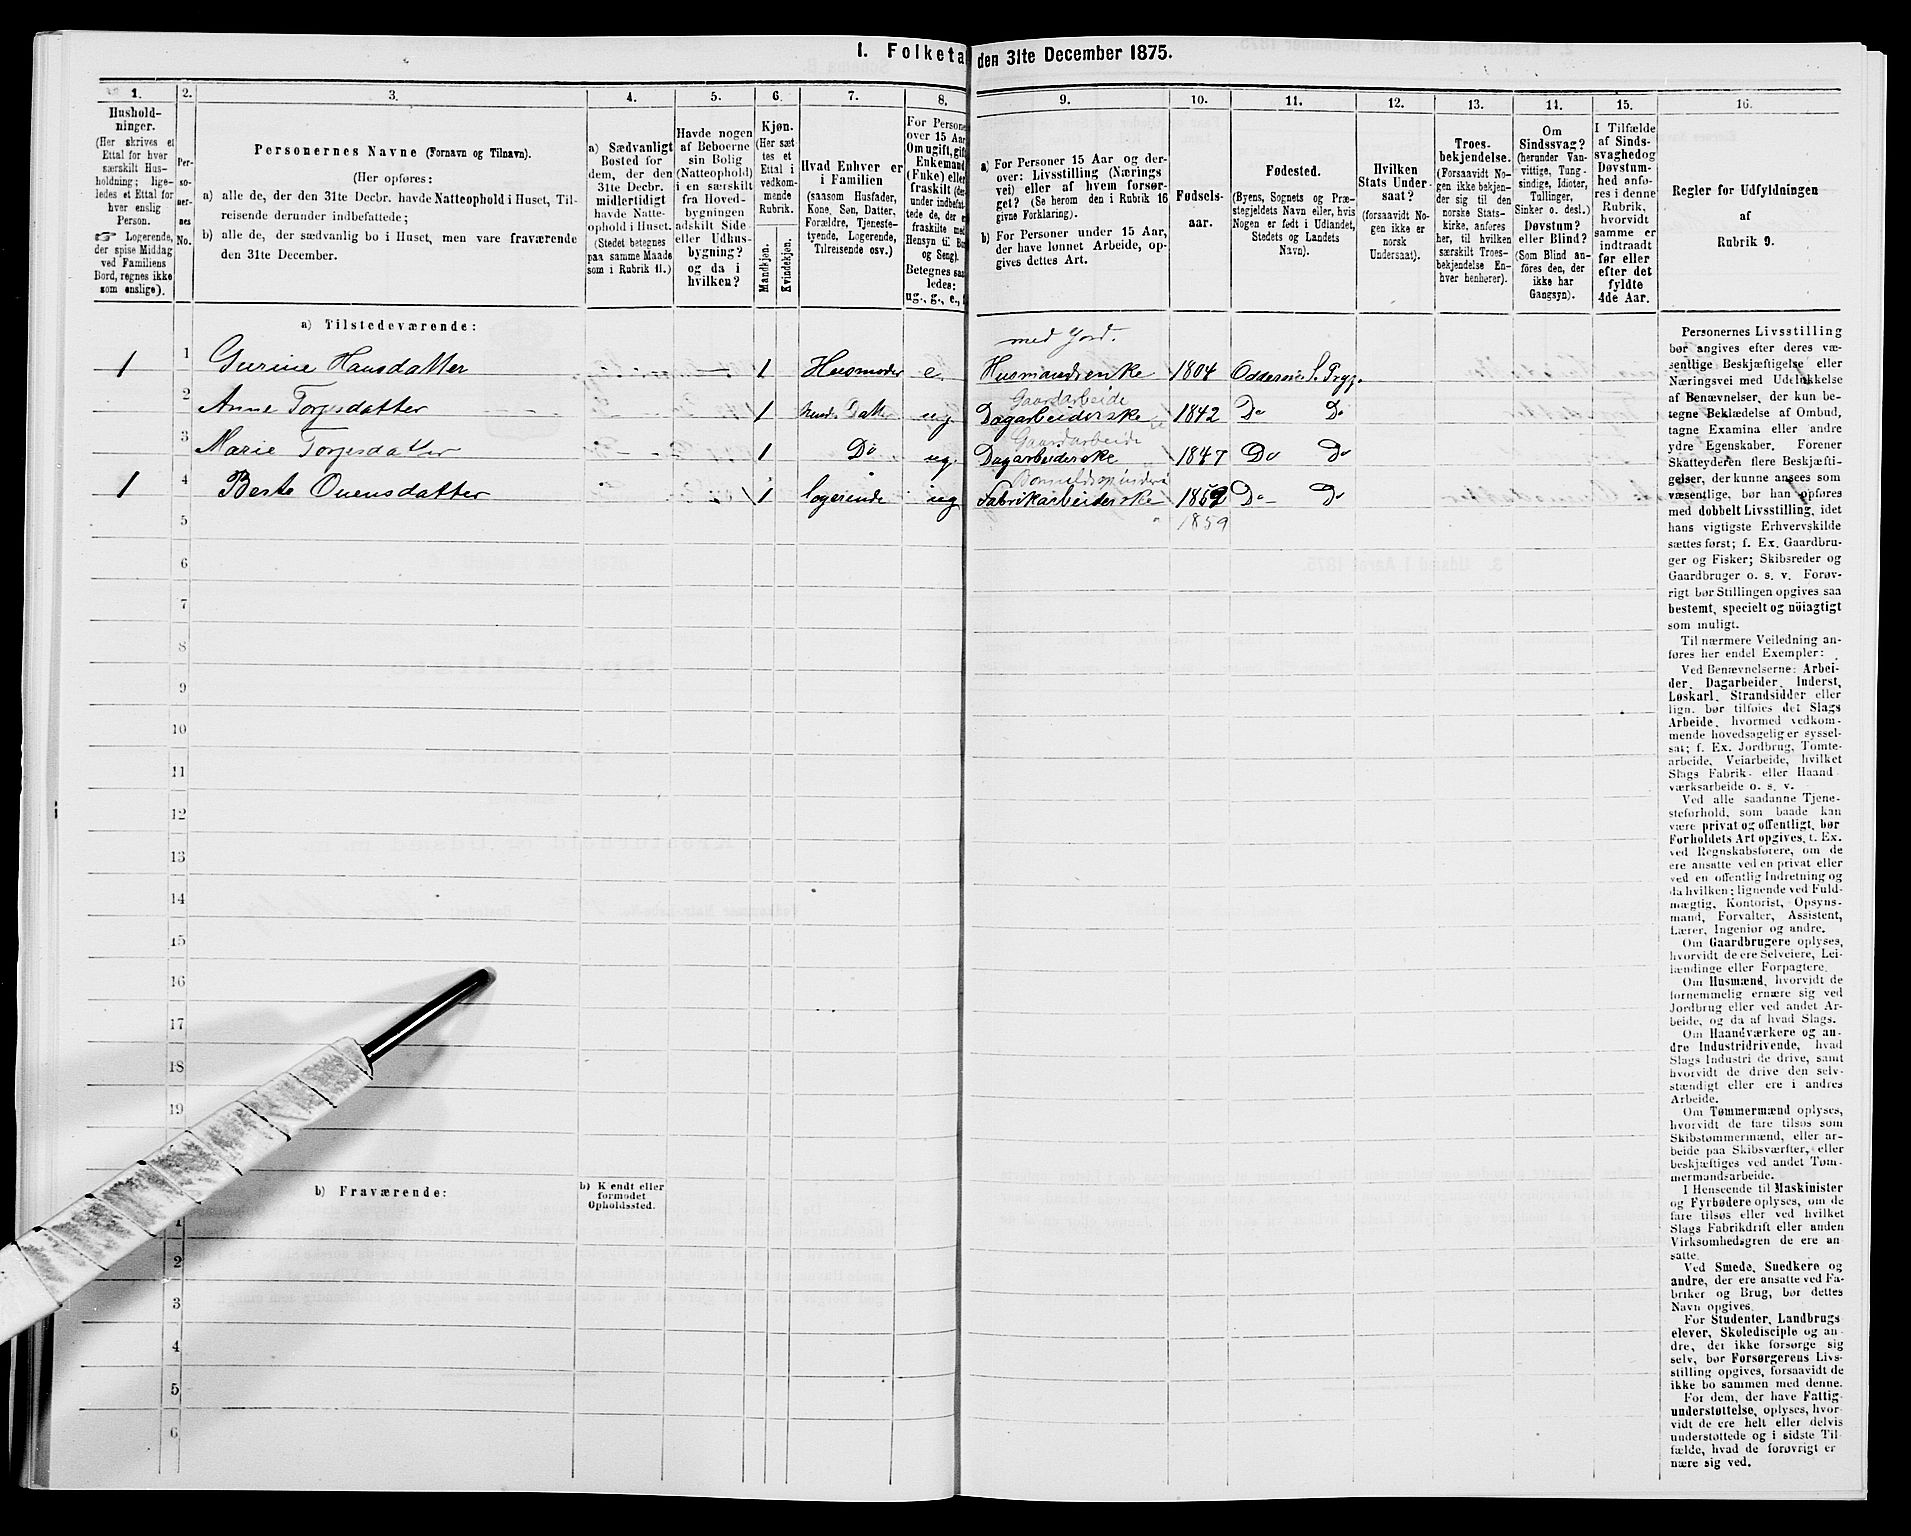 1. Folketa den 31te December 1875.
1. 2. 3. 4. 5. 6. 7. 8. 9. 10. 11. 12. 13. 14. 15. 16.
Hushold-
ninger.
(Her skrives et
Ettal for hver
særskilt Hus-
holdning; lige-
ledes et Ettal for
hver enslig
Person.
☞ Logerende,
der spise Middag
ved Familiens
Bord, regnes ikke
som enslige).
Per-
so-
ner-
nes
No.
Personernes Navne (Fornavn og Tilnavn).
(Her opføres:
a) alle de, der den 31te Decbr. havde Natteophold i Huset, Til-
reisende derunder indbefattede;
b) alle de, der sædvanlig bo i Huset, men vare fraværende
den 31te December.
a) Sædvanligt
Bosted for
dem, der den
31te Decbr.
midlertidigt
havde Natte-
ophold i Huset.
(Stedet betegnes
paa samme Maade
som i Rubrik 11.)
Havde nogen
af Beboerne
sin Bolig
(Natteophold)
i en særskilt
fra Hoved-
bygningen
adskilt Side-
eller Udhus-
bygning?
og da i
hvilken?
Kjøn.
(Her sæt-
tes et
Ettal i
vedkom-
mende
Rubrik.
Mandkjøn.
Kvindekjøn.
Hvad Enhver er
i Familien
(saasom Husfader,
Kone, Søn, Datter,
Forældre, Tjeneste-
tyende, Logerende,
Tilreisende osv.)
For Persone
over 15 Aar
Om ugift, gift
Enkemand
(Enke) eller
fraskilt (der
under indbefat-
tede de, der e
fraskilte med
Hensyn til Bo
og Seng).
Betegnes saa
ledes:
ug., g., e.,
a) For Personer 15 Aar og der-
over: Livsstilling (Nærings
vei) eller af hvem forsør-
get? (Se herom den i Rubrik 16
givne Forklaring).
b) For Personer under 15 Aar,
der have lønnet Arbeide, op-
gives dettes Art.
Fødsels-
aar.
Fødested.
(Byens, Sognets og Præ-
stegjeldets Navn eller, hvis
Nogen er født i Udlandet,
Stedets og Landets
Navn).
Hvilken
Stats Under-
saat?
(forsaavidt No-
gen ikke er
norsk
Undersaat).
Troes-
bekjendelse.
(Forsaavidt No-
gen ikke bekjen-
der sig til den
norske Stats-
kirke, anføres
her, til hvilken
særskilt Troes-
bekjendelse En-
hver henhører).
Om
Sindssvag?
(herunder Van-
vittige, Tung-
sindige, Idioter,
Tullinger,
Sinker o. desl.)
Døvstum?
eller Blind?
(Som Blind an-
føres den, der
ikke har
Gangsyn).
I Tilfælde
af Sinds-
svaghed og
Døvstum-
hed anfø-
res i denne
Rubrik,
hvorvidt
samme er
indtraadt
før eller
efter det
fyldte
4de Aar.
Regler for Udfyldningen
af
Rubrik 9.
a) Tilstedeværende:
med Jord.
1 1 Gurine Hansdatter 1 Husmoder e. Husmandsenke 1804 Oddernes S. Prgj.
Gaardarbeide
2 Anne Torjesdatter 1 hend. Datter ug. Dagarbeiderske 1842 Do Do
Gaardarbeide
3 Marie Torjesdatter 1 Do ug Dagarbeiderske 1847 Do Do
Bomuldsspinderi
1 4 Berte Ouensdatter 1 logerende ug Fabrikarbeiderske 1859 Do Do
5 1859
6
7
8
9
10
11
12
13
14
15
16
17
18
19
b) Fraværende:
b) Kjendt eller
formodet
Opholdssted.
1
2
3
4
5
6
Personernes Livsstilling
bør angives efter deres væ-
sentlige Beskjæftigelse eller
Næringsvei med Udelukkelse
af Benævnelser, der kun be-
tegne Beklædelse af Ombud,
tagne Examina eller andre
ydre Egenskaber. Forener
Skatteyderen flere Beskjæfti-
gelser, der kunne ansees som
væsentlige, bør han opføres
med dobbelt Livsstilling, idet
hans vigtigste Erhvervskilde
sættes først; f. Ex. Gaardbru-
ger og Fisker; Skibsreder og
Gaardbruger o. s. v. Forøv-
rigt bør Stillingen opgives saa
bestemt, specielt og nøiagtigt
som muligt.
Til nærmere Veiledning an-
føres her endel Exempler:
Ved Benævnelserne: Arbei-
der, Dagarbeider, Inderst,
Løskarl, Strandsidder eller
lign. bør tilføies det Slags
Arbeide, hvormed vedkom-
mende hovedsagelig er syssel-
sat; f. Ex. Jordbrug, Tomte-
arbeide, Veiarbeide, hvilket
Slags Fabrik- eller Haand
værksarbeide o. s. v.
Ved alle saadanne Tjene-
steforhold, som baade kan
være privat og offentligt, bør
Forholdets Art opgives, t. Ex.
ved Regnskabsførere, om de
ere ansatte ved en privat eller
ved en offentlig Indretning og
da hvilken; lignende ved Fuld-
mægtig, Kontorist, Opsyns-
mand, Forvalter, Assistent,
Lærer, Ingeniør og andre.
Om Gaardbrugere oplyses,
hvorvidt de ere Selveiere, Lei-
lændinge eller Forpagtere.
Om Husmænd, hvorvidt de
fornemmelig ernære sig ved
Jordbrug eller ved andet Ar-
beide, og da af hvad Slags.
Om Haandværkere og an-
dre Industridrivende, hvad
Slags Industri de drive, samt
hvorvidt de drive den selv-
stændigt eller ere i andres
Arbeide.
Om Tømmermænd oplyses,
hvorvidt de fare tilsøs som
Skibstømmermænd, eller ar-
beide paa Skibsværfter, eller
beskjæftiges ved andet Tøm-
mermandsarbeide.
I Henseende til Maskinister
og Fyrbødere oplyses, om de
fare tilsøs eller ved hvilket
Slags Fabrikdrift eller anden
Virksomhedsgren de ere an-
satte.
Ved Smede, Snedkere og
andre, der ere ansatte ved Fa-
briker og Brug, bør dettes
Navn opgives.
For Studenter, Landbrugs-
elever, Skoledisciple og an-
dre, der ikke forsørge sig
selv, bør Forsørgerens Livs-
stilling opgives, forsaavidt de
ikke bo sammen med denne.
For dem, der have Fattig-
understøttelse, oplyses, hvor-
vidt de ere helt eller delvis
understøttede og i sidste Til-
fælde, hvad de forøvrigt er-
nære sig ved.